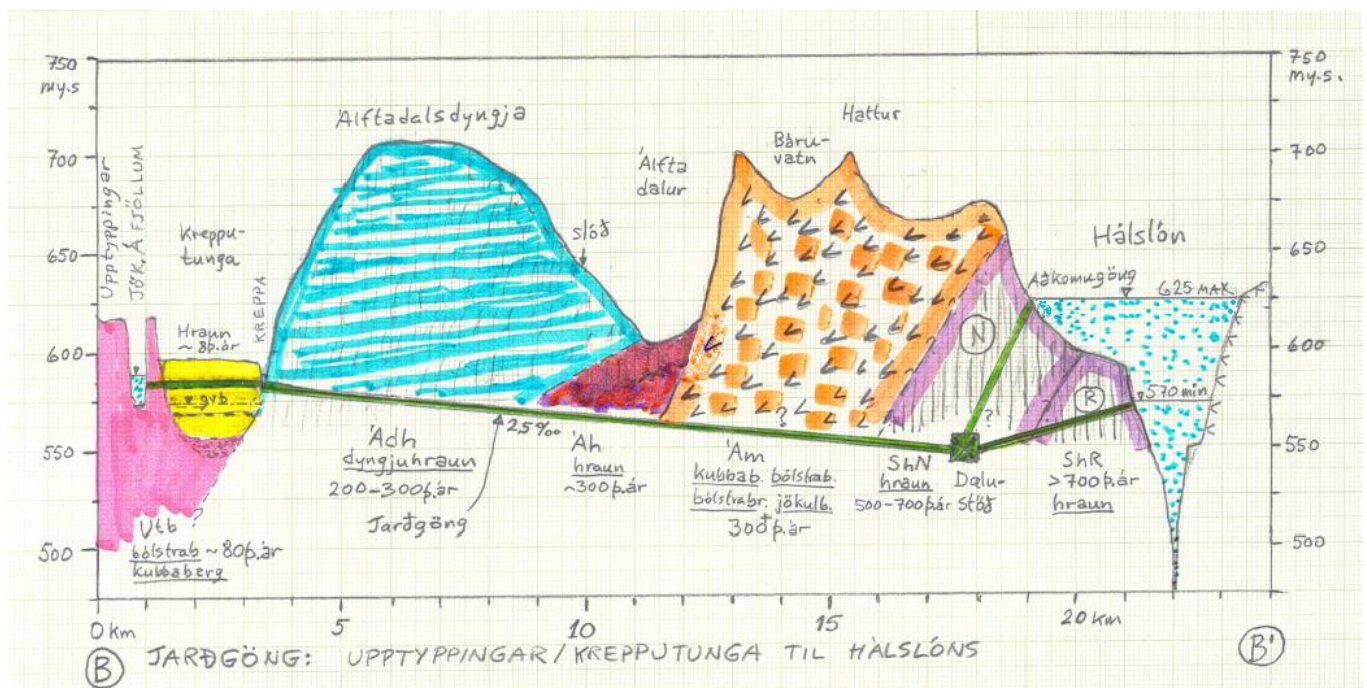 750
my.s
700
650
600
550
500
750
my.s.
700
650
600
550
500
Upptyppingar
JÖK. Á FJÖLLUM
Kreppu-
tunga
Hraun
~8þ.ár
KREPPA
gvb.
Álftadalsdyngja
slóð
Álfta
dalur
Báru-
vatn
Hattur
Hálslón
Aðkomugöng
625 MAX
570 min
N
R
?
?
?
Utb ?
bólstrab ~80þ.ár
kubbaberg
Ádh
dyngjuhraun
200-300þ.ár
Jarðgöng
25‰
Áh
hraun
~300þ.ár
Ám
kubbab. bólstrab.
bólstrabr. jökulb.
300þ.ár
ShN
hraun
500-700þ.ár
Dælu-
stöð
ShR
>700þ.ár
hraun
0 km
5
10
15
20 km
B
JARÐGÖNG: UPPTYPPINGAR/KREPPUTUNGA TIL HÁLSLÓNS
B'